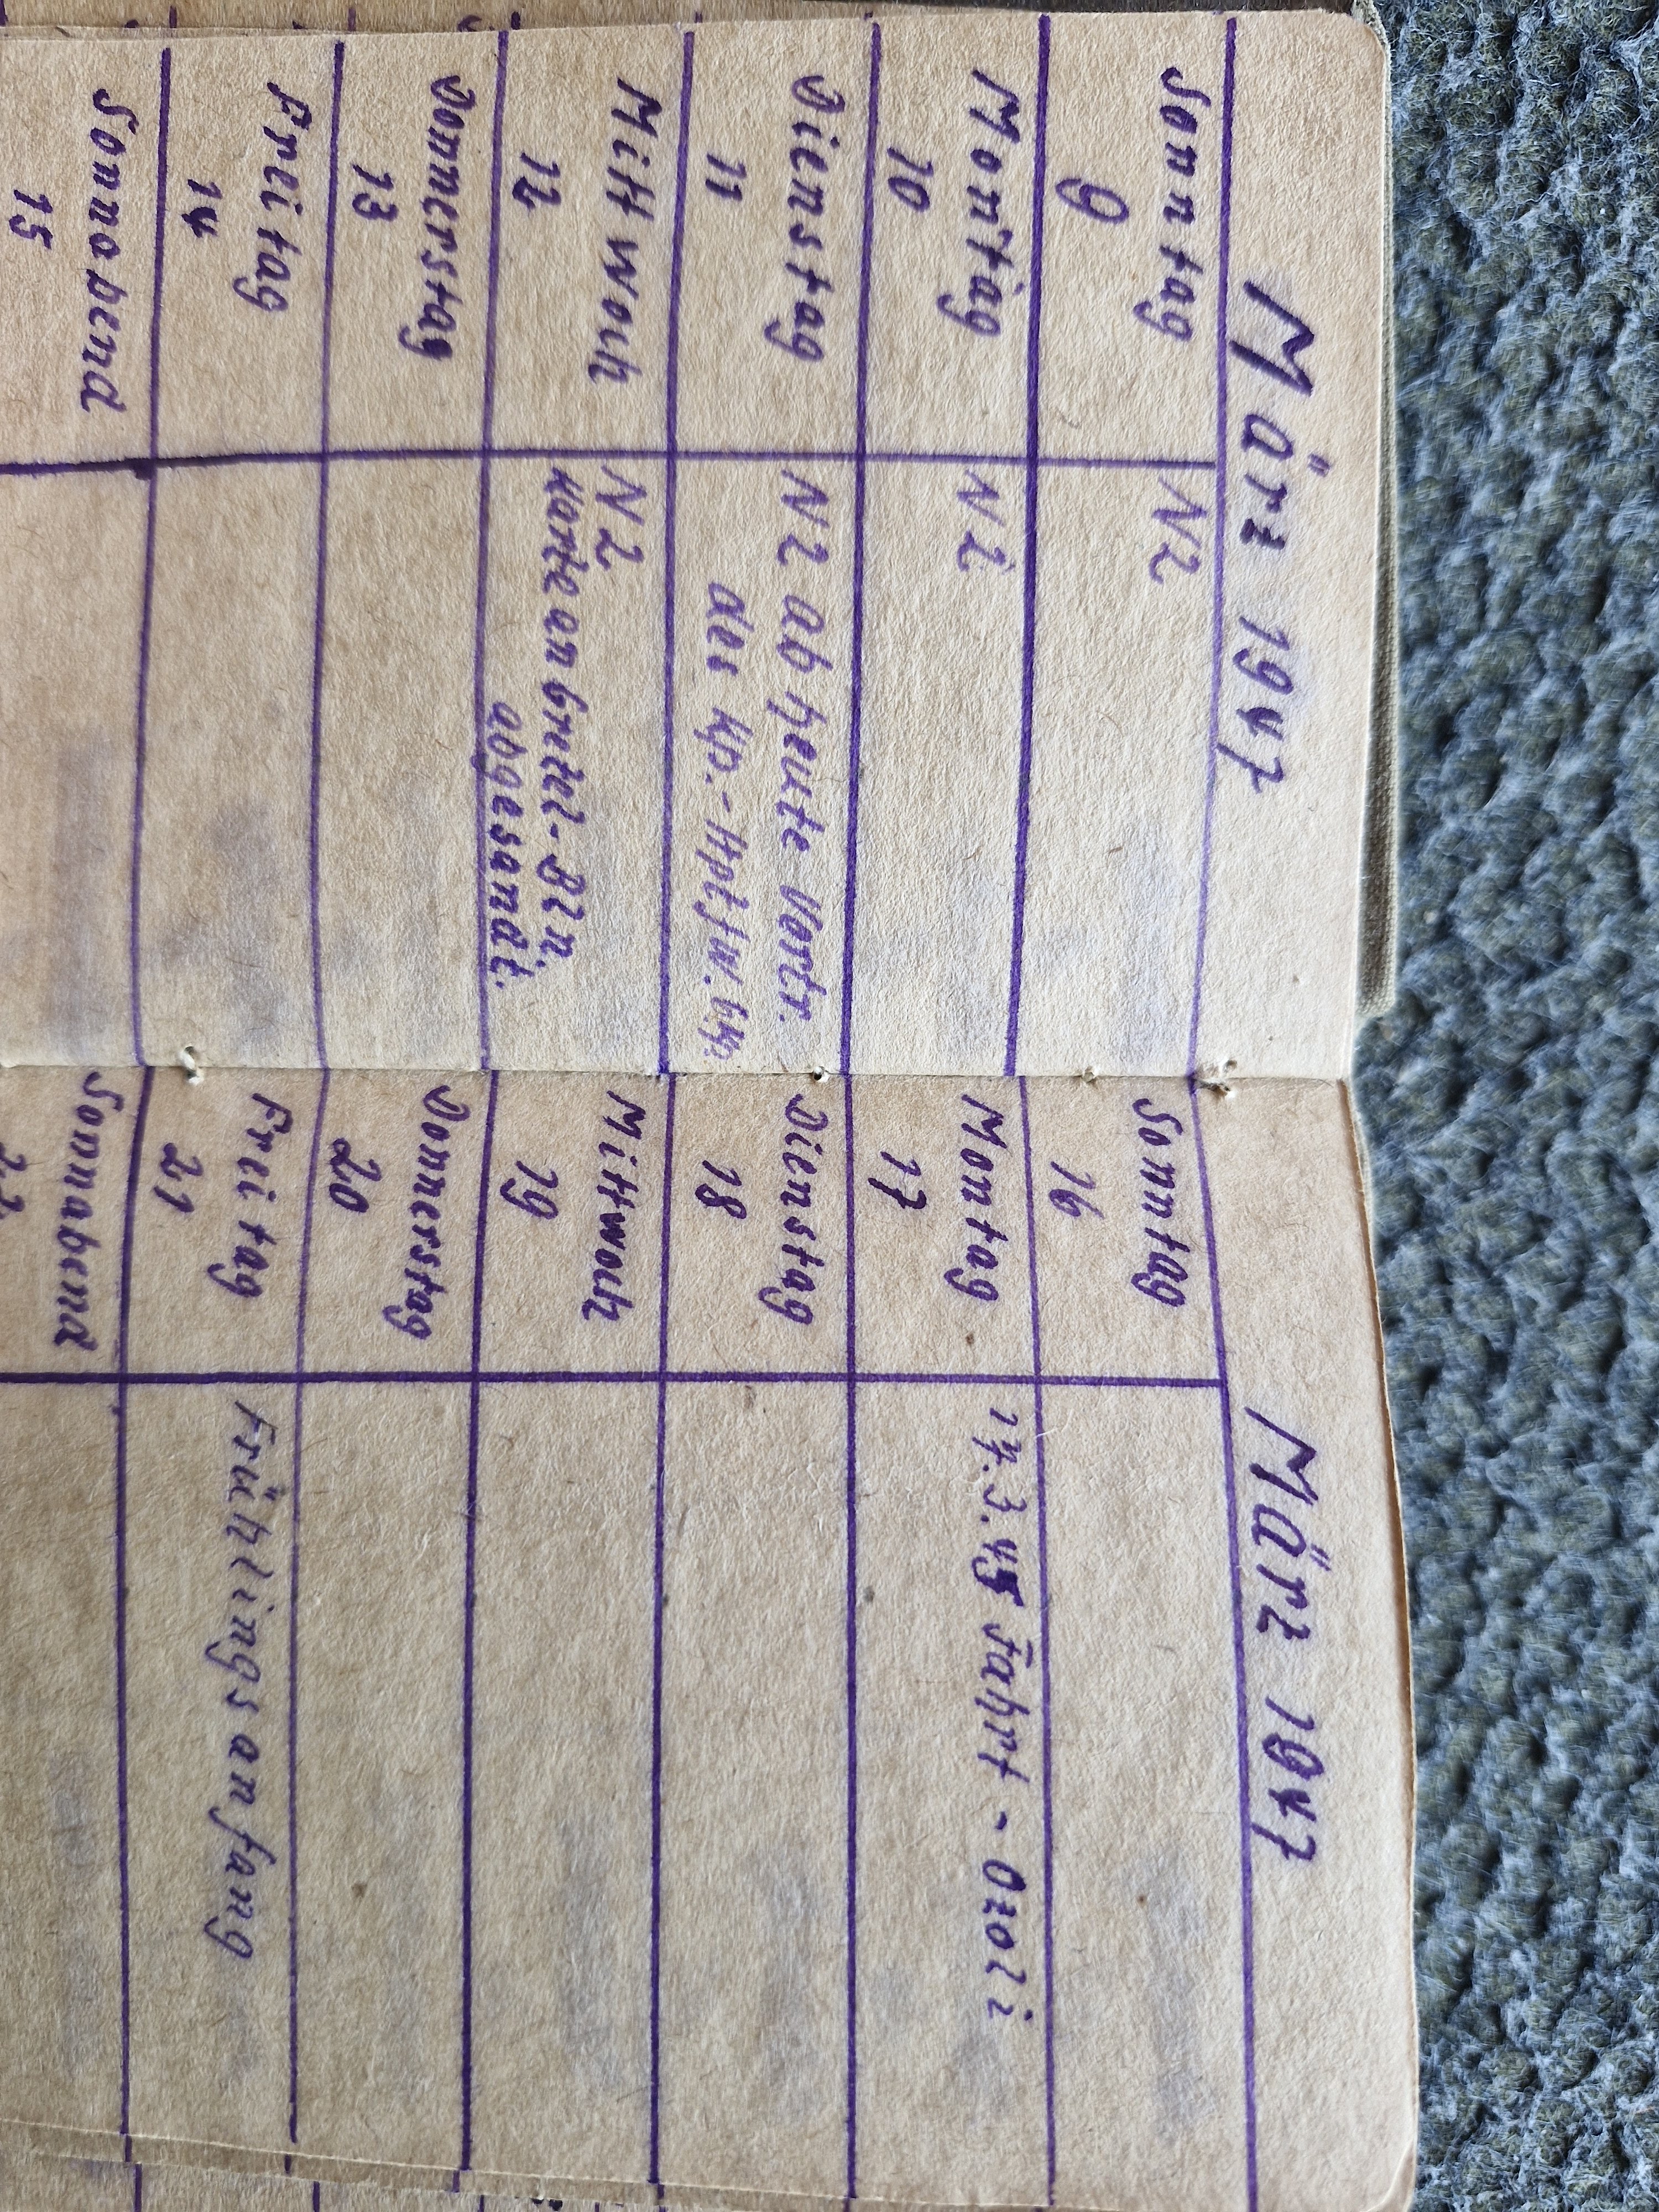 März 1947
Sonntag
9
N2
Montag
10
N2
Dienstag
11
N2 ab heute vertr.
des Kp.-Hptfw.
Mittwoch
12
N2
Karte an Gretel-Bln.
abgesandt.
Donnerstag
13
Freitag
14
Sonnabend
15
März 1947
Sonntag
16
Montag
17
17.3.45 Fahrt - Ozoli
Dienstag
18
Mittwoch
19
Donnerstag
20
Freitag
21
Frühlingsanfang
Sonnabend